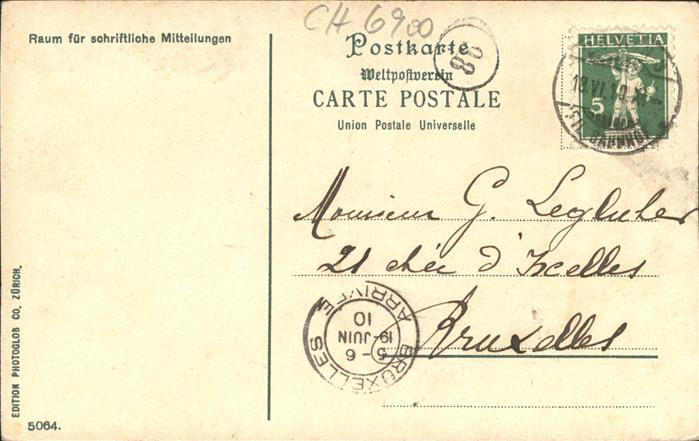 CH 6900
Raum für schriftliche Mitteilungen
Postkarte
Weltpostverein
CARTE POSTALE
Union Postale Universelle
80
HELVETIA
5
18.VI.10
BAHNHOF
Monsieur G.
21 chée d'Ixelles
Bruxelles
BRUXELLES
ARRIVEE
5-6
19-JUIN
10
EDITION PHOTOGLOB CO. ZÜRICH.
5064.